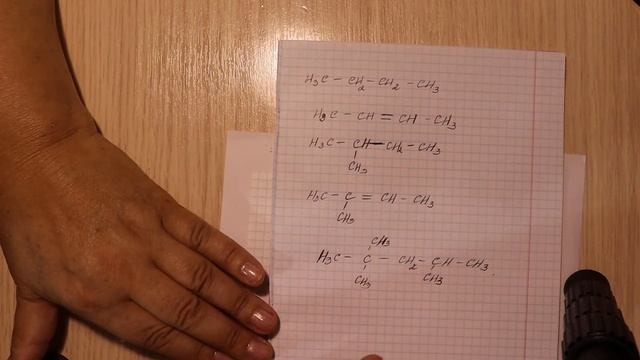 H3C – CH2 – CH2 – CH3
H3C – CH = CH – CH3
H3C – CH – CH2 – CH3
CH3
H3C – C = CH – CH3
CH3
CH3
H3C – C – CH2 – CH – CH3
CH3 CH3